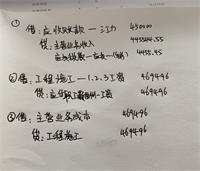 ① 借：应收账款 — 江力 450000
贷：主营业务收入 445544.55
应交税费 — 应交 — (销) 4455.45
② 借：工程施工 — 1.2.3工资 469496
贷：应付职工薪酬 — 工资 469496
③ 借：主营业务成本 469496
贷：工程施工 469496